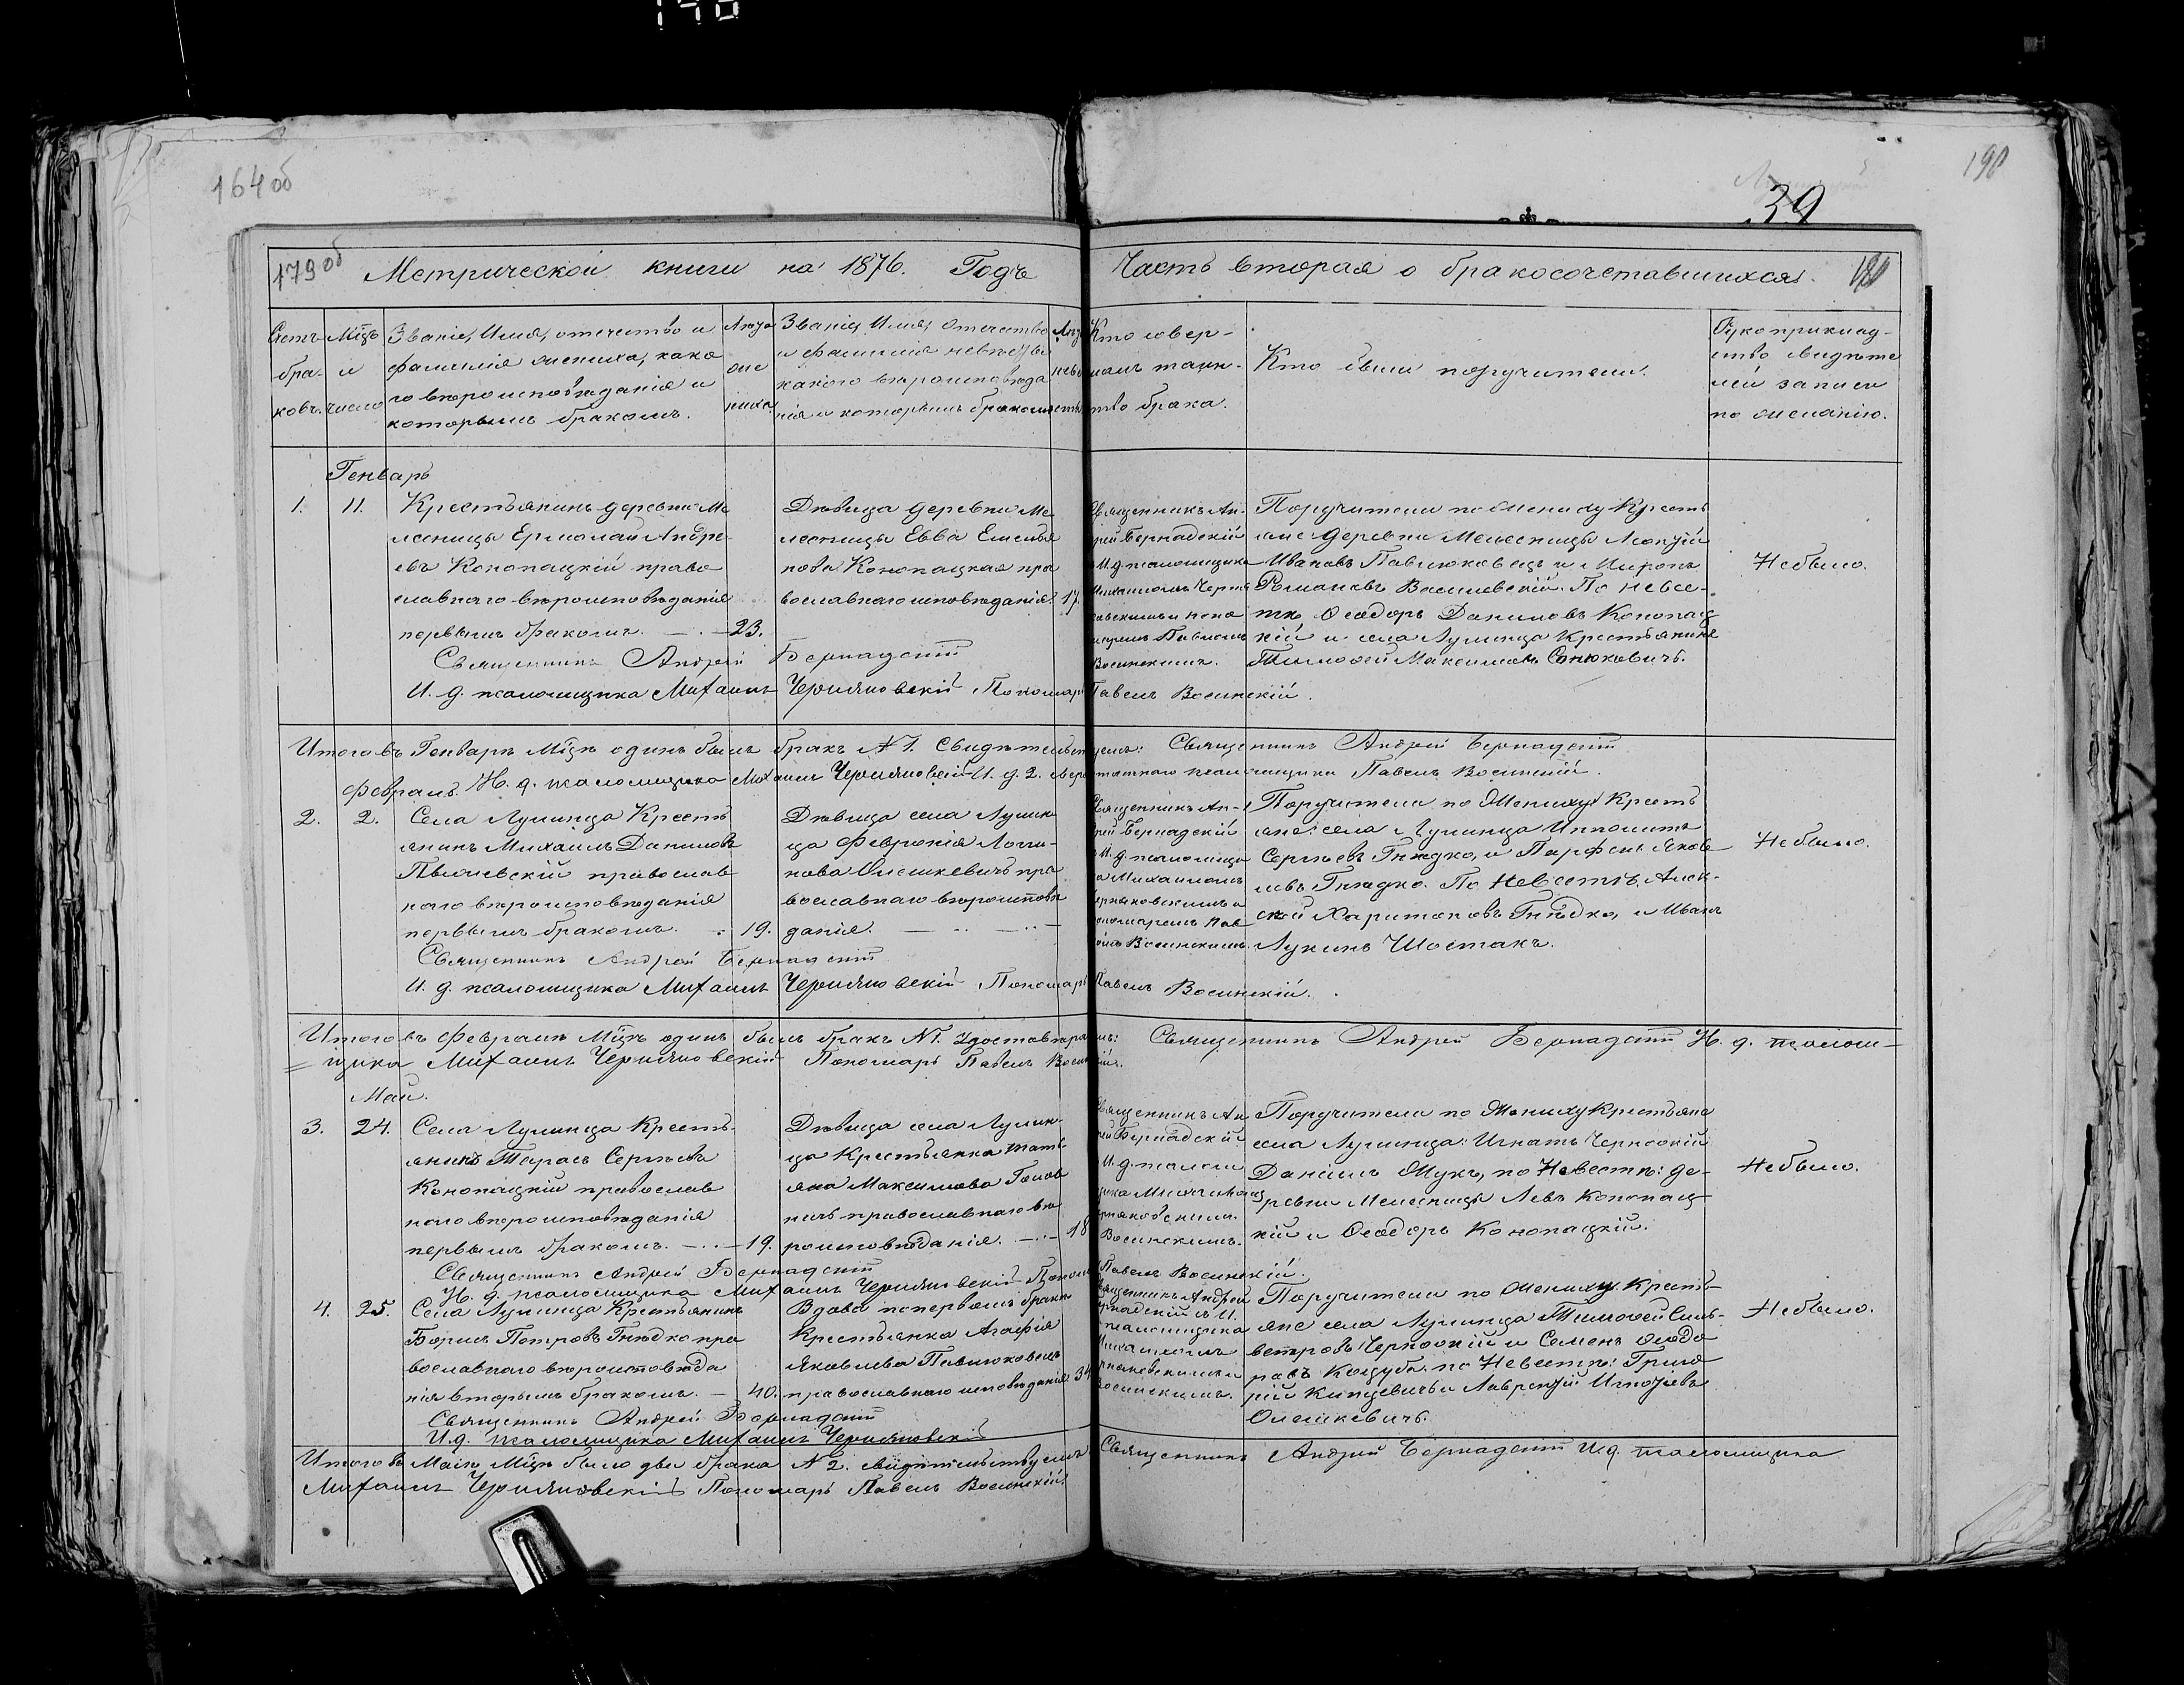 164 об
190
39
179 об
Метрической книги на 1876. Годъ
Часть вторая о бракосочетавшихся.
Счетъ
бра-
ковъ.
Мцъ
и
число
Званіе, Имя, отечество и
фамилія жениха, како
го вѣроисповѣданія и
которымъ бракомъ.
Лѣта
же
ниха
Званіе, Имя, Отечество
и фамилія невѣсты
какого вѣроисповѣда
нія и которымъ бракомъ
Кто совер-
шалъ таин-
ство брака.
Кто были поручители.
Рукоприклад-
ство свидѣте
лей записи
по желанію.
Генварь
1. 11.
Крестьянинъ деревни Ме
лесницы Ермолай Андре-
евъ Конопацкій право
славнаго вѣроисповѣданія
первымъ бракомъ. — . — 23.
Дѣвица деревни Ме
лесницы Евва Емелья
нова Конопацкая пра
вославнаго исповѣданія. 17.
Священникъ Ан-
дрей Бернадскій
И. д. псаломщика
Михаиломъ Черня
ковскимъ и поно
маремъ Павломъ
Волынскимъ.
Поручители по Жениху Кресть
яне деревни Мелесницы
Ивановъ Павлюковецъ и Миронъ
Романовъ Василевскій. По невѣс-
тѣ Ѳеодоръ Даниловъ Конопац
кій и села Лунинца Крестьянинъ
Тимоѳей Максимовъ Сенюковичъ.
Небыло.
Священникъ Андрей Бернадскій
И. д. псаломщика Михаилъ Черняковскій Пономарь Павелъ Волынскій.
Итого въ Генварѣ Мцѣ одинъ былъ бракъ № 1. Свидѣтельствуемъ: Священникъ Андрей Бернадскій
Февраль. И. д. псаломщика Михаилъ Черняковскій И. д. 2. сверхштатнаго псаломщика Павелъ Волынскій.
2. 2.
Села Лунинца Кресть
янинъ Михаилъ Даниловъ
православ
наго вѣроисповѣданія
первымъ бракомъ. 19.
Дѣвица села Лунин-
ца Февронія Логи-
нова Олешкевичъ пра
вославнаго вѣроисповѣ
данія.
Священникъ Ан-
дрей Бернадскій
И. д. псаломщи
ка Михаиломъ
Черняковскимъ и
пономаремъ Пав
ломъ Волынскимъ.
Поручители по Жениху: Кресть
яне: села Лунинца Ипполитъ
Сергѣевъ Гнѣдко, и Парфенъ Яков
левъ Гнѣдко. По Невѣстѣ, Алек-
сѣй Харитоновъ Гнѣдко, и Иванъ
Лукинъ Шостакъ.
Небыло.
Священникъ Андрей Бернадскій
И. д. псаломщика Михаилъ Черняковскій Пономарь Павелъ Волынскій.
Итого въ Февралѣ Мцѣ одинъ былъ бракъ № 1. Удостовѣряемъ: Священникъ Андрей Бернадскій И. д. псалом-
щика Михаилъ Черняковскій Пономарь Павелъ Волынскій.
Май.
3. 24.
Села Лунинца Кресть-
янинъ Тарасъ Сергѣевъ
Конопацкій православ
наго вѣроисповѣданія
первымъ бракомъ. — .. — 19.
Дѣвица села Лунин-
ца Крестьянка Тать
яна Максимова
православнаго вѣ
роисповѣданія. — . — 18
Священникъ Ан
дрей Бернадскій
И. д. псалом
щика Михаиломъ
Черняковскимъ.
Волынскимъ.
Поручители по Жениху Крестьяне
села Лунинца: Игнатъ Черноокій
Даніилъ Жукъ, по Невѣстѣ: де-
ревни Мелесницы Левъ Конопац-
кій и Ѳеодоръ Конопацкій.
Небыло.
Священникъ Андрей Бернадскій
И. д. псаломщика Михаилъ Черняковскій Пономарь Павелъ Волынскій.
4. 25.
Села Лунинца Крестьянинъ
Борисъ Петровъ Гнѣдко пра
вославнаго вѣроисповѣда
нія вторымъ бракомъ. — 40.
Вдова по первомъ бракѣ
Крестьянка Агафія
Яковлева Павлюковецъ
православнаго исповѣданія. 34
Священникъ Андрей
Бернадскій и И.
псаломщика
Михаиломъ
Черняковскимъ и
Волынскимъ.
Поручители по Жениху: Кресть-
яне села Лунинца Тимоѳей Силь-
вестровъ Черноокій и Семенъ Ѳеодо
ровъ Коцуба. по Невѣстѣ: Григо
рій и Лаврентій Игнатьевъ
Олешкевичъ.
Небыло.
Священникъ Андрей Бернадскій
И. д. псаломщика Михаилъ Черняковскій
Итого въ Маѣ Мцѣ было два брака № 2. свидѣтельствуемъ Священникъ Андрей Бернадскій И. д. псаломщика
Михаилъ Черняковскій Пономарь Павелъ Волынскій